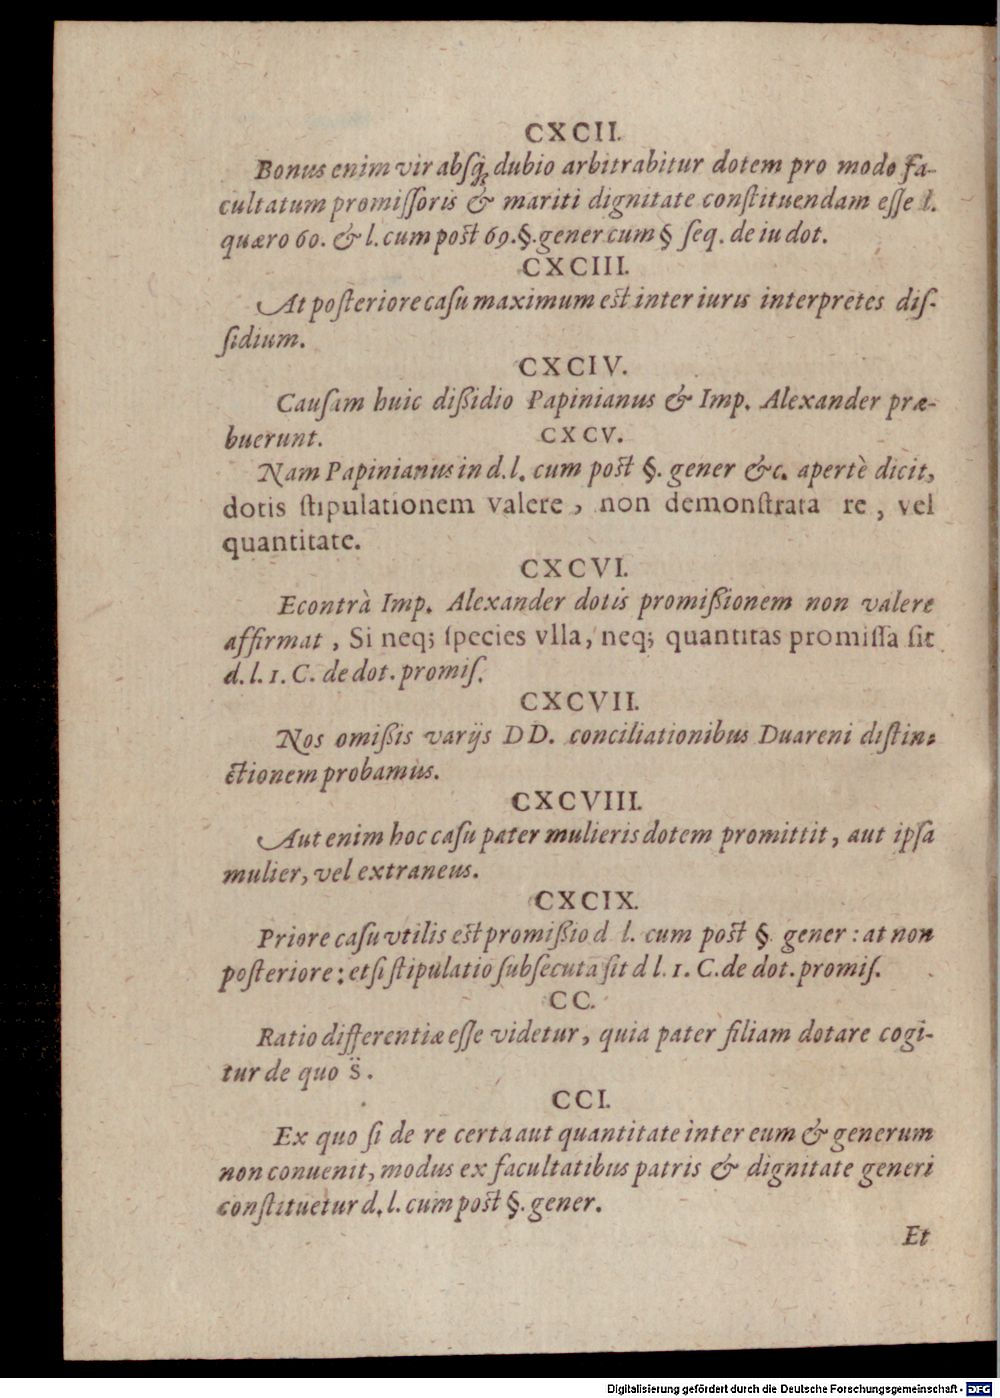 CXCII.
Bonus enim vir absq; dubio arbitrabitur dotem pro modo fa-
cultatum promiſſoris & mariti dignitate conſtituendam eſſe l.
quæro 60. & l. cum poſt 69. §. gener cum § ſeq. de iu dot.
CXCIII.
At poſteriore caſu maximum eſt inter iuris interpretes diſ-
ſidium.
CXCIV.
Cauſam huic dißidio Papinianus & Imp. Alexander præ-
buerunt.
CXCV.
Nam Papinianus in d. l. cum poſt §. gener &c. apertè dicit,
dotis ſtipulationem valere, non demonſtrata re, vel
quantitate.
CXCVI.
Econtrà Imp. Alexander dotis promißionem non valere
affirmat, Si neq; ſpecies vlla, neq; quantitas promiſſa ſit
d. l. 1. C. de dot. promiſ.
CXCVII.
Nos omißis varijs DD. conciliationibus Duareni diſtin-
ctionem probamus.
CXCVIII.
Aut enim hoc caſu pater mulieris dotem promittit, aut ipſa
mulier, vel extraneus.
CXCIX.
Priore caſu vtilis eſt promißio d l. cum poſt §. gener: at non
poſteriore: etſi ſtipulatio ſubſecuta ſit d l. 1. C. de dot. promiſ.
CC.
Ratio differentiæ eſſe videtur, quia pater filiam dotare cogi-
tur de quo s̈.
CCI.
Ex quo ſi de re certa aut quantitate inter eum & generum
non conuenit, modus ex facultatibus patris & dignitate generi
conſtituetur d. l. cum poſt §. gener.
Et
Digitalisierung gefördert durch die Deutsche Forschungsgemeinschaft - DFG